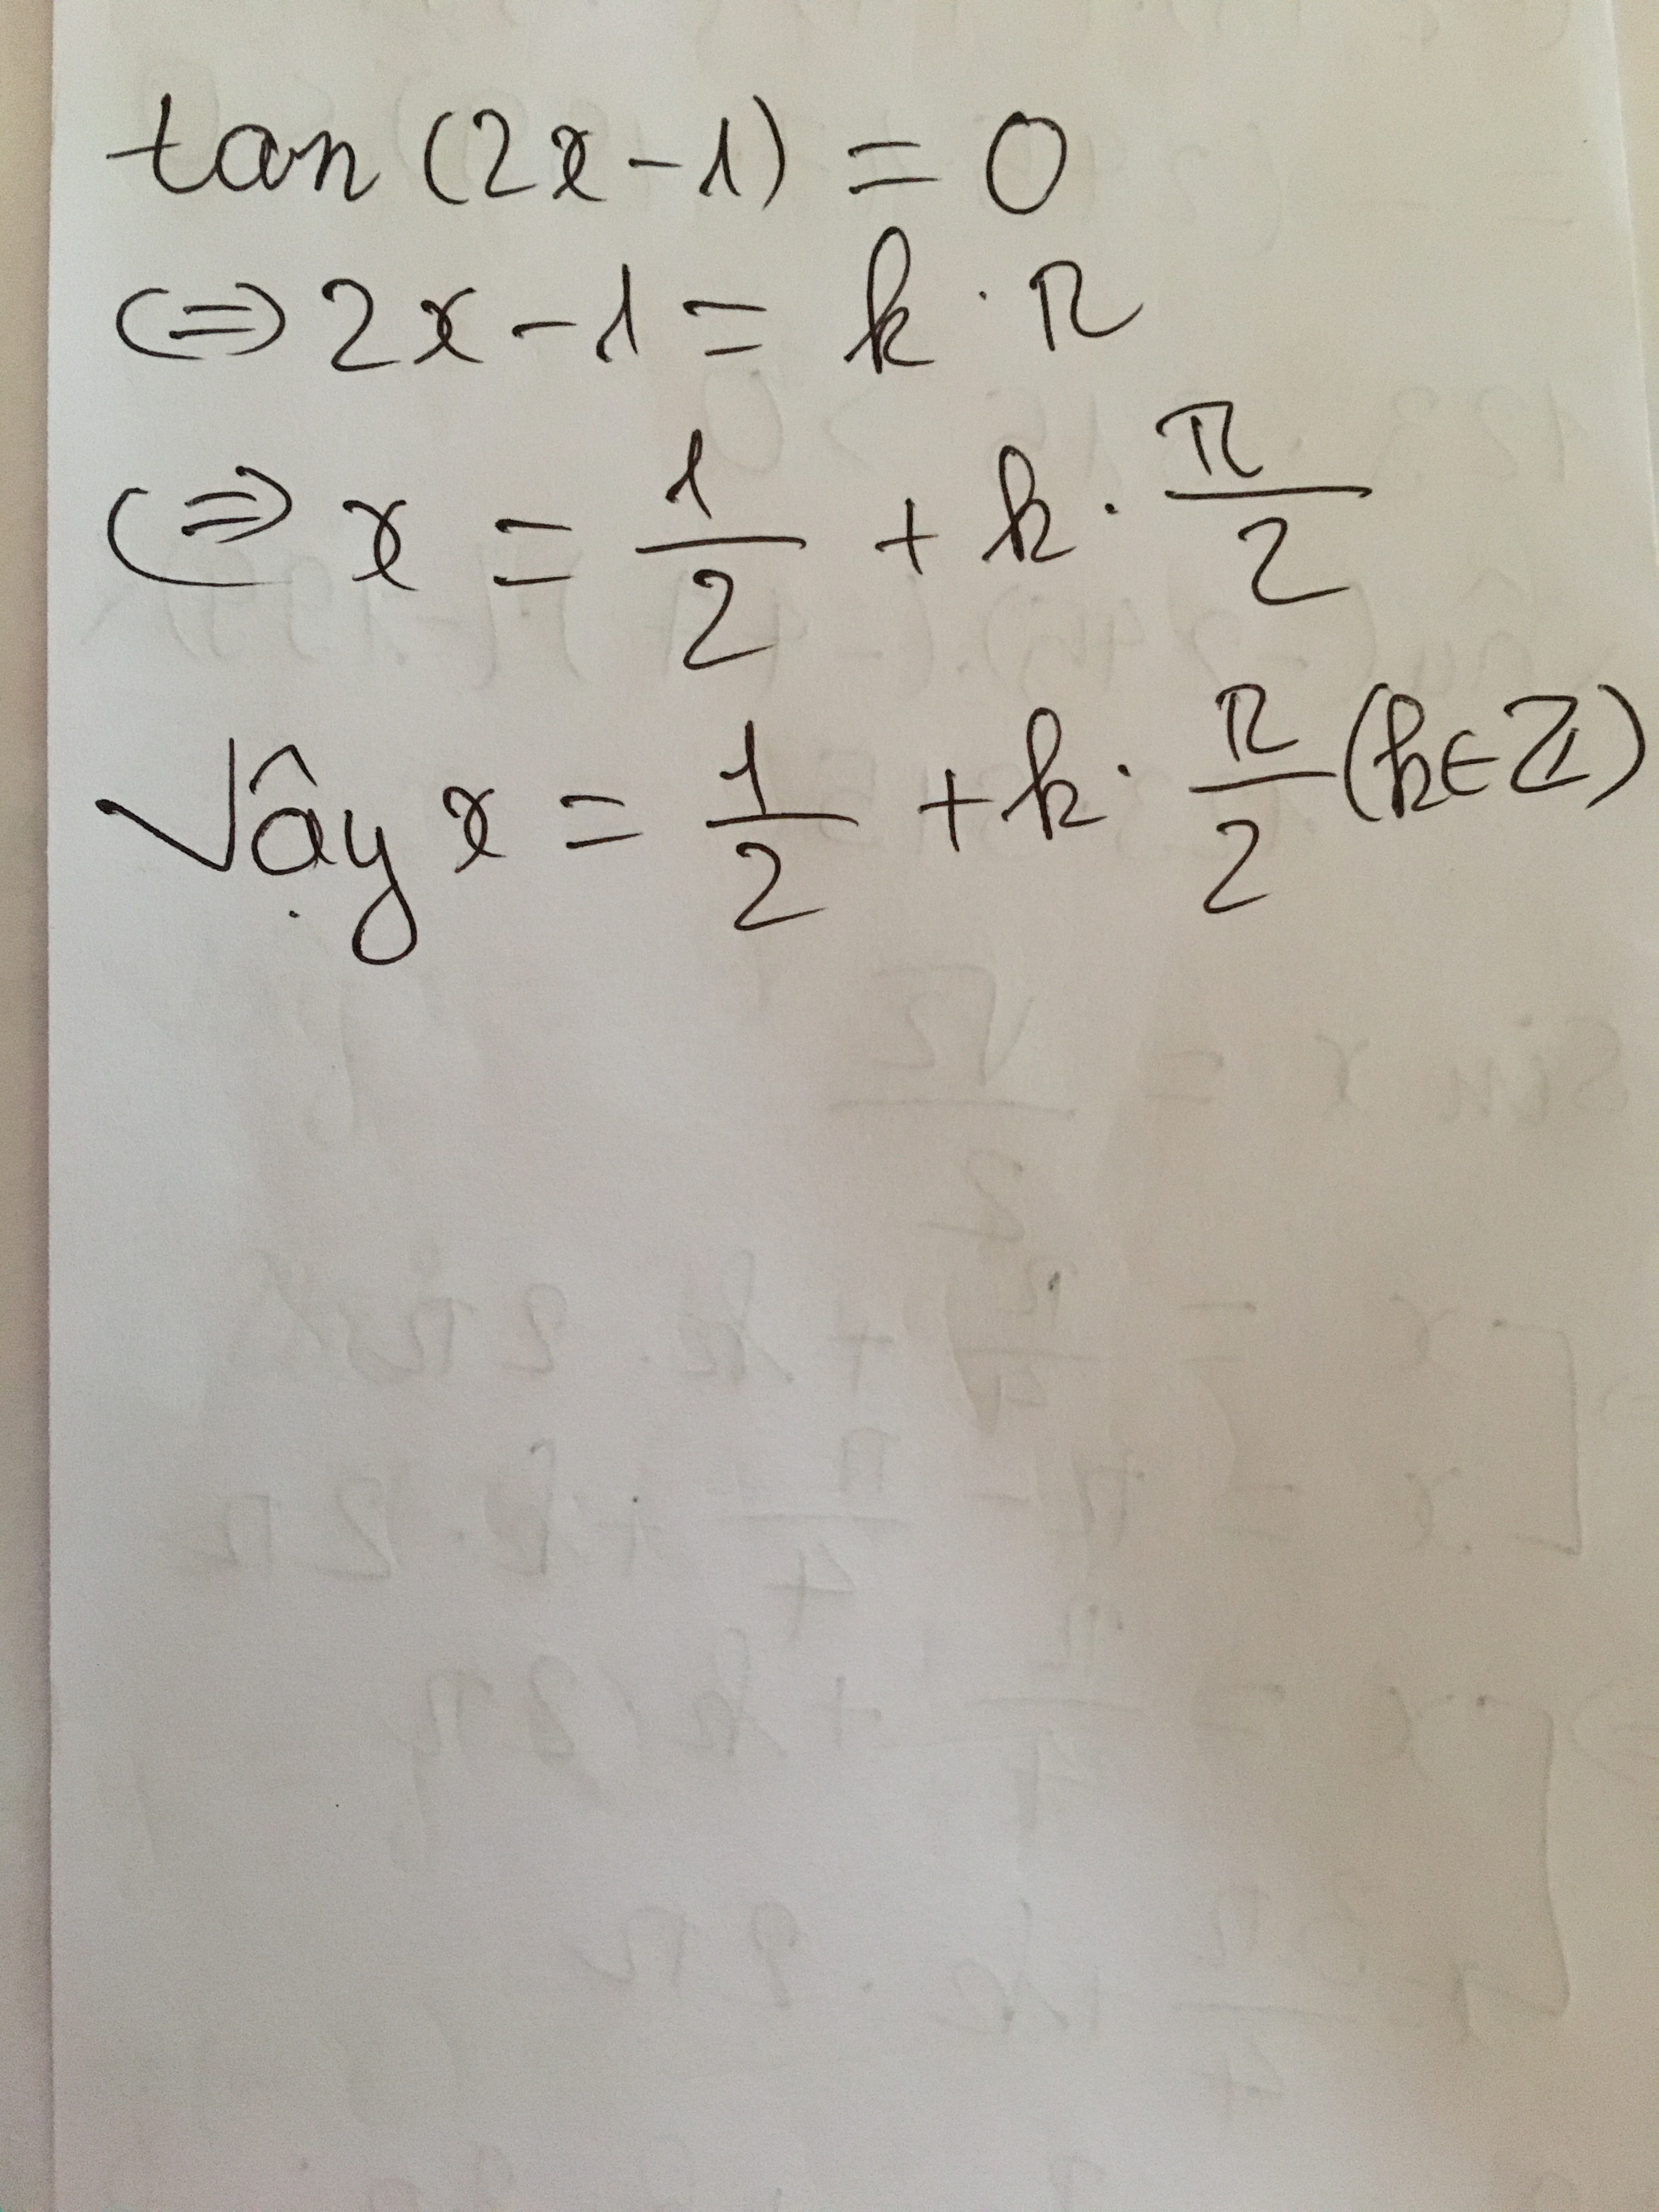 tan (2x - 1) = 0
⇔ 2x - 1 = k . π
⇔ x = 1/2 + k . π/2
Vậy x = 1/2 + k . π/2 (k ∈ Z)